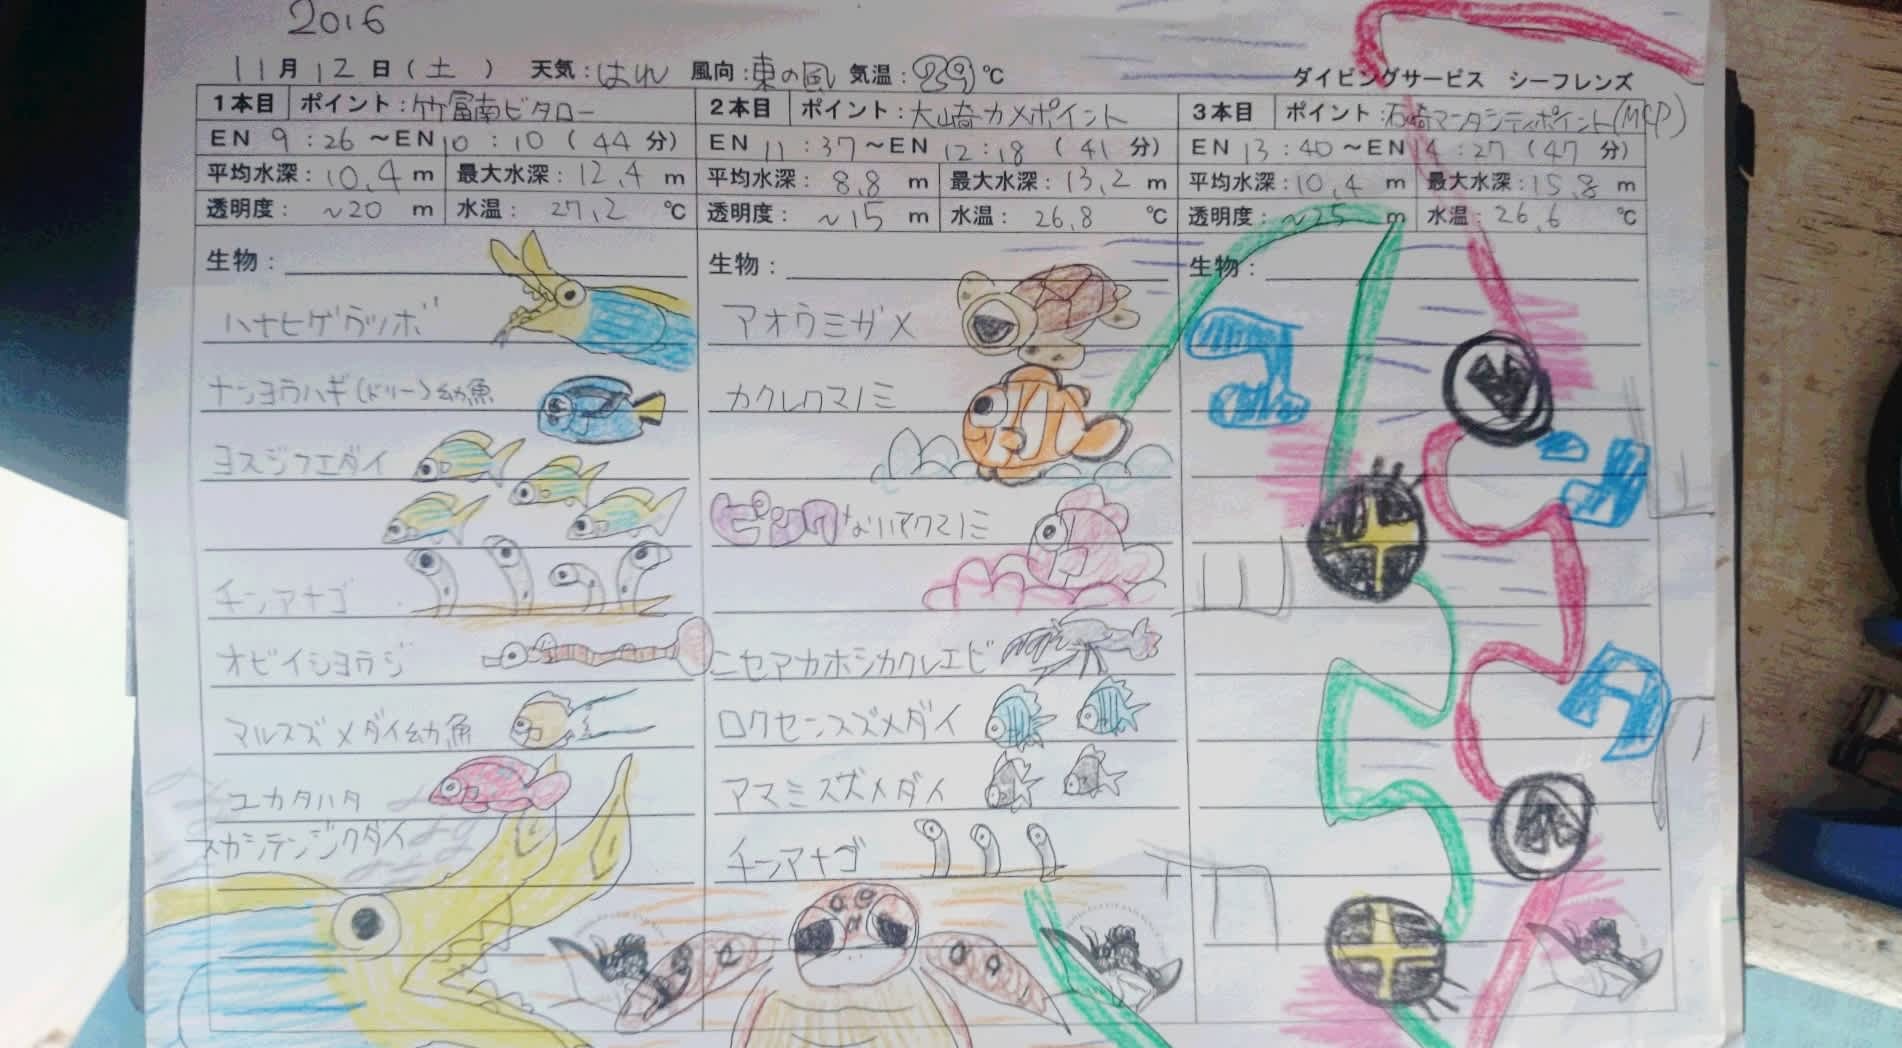 2016
11月12日(土) 天気:はれ 風向:東の風 気温:29℃
ダイビングサービス シーフレンズ
1本目 ポイント:竹富南ビタロー
EN 9:26～EN 10:10(44分)
平均水深:10.4m 最大水深:12.4m
透明度:~20m 水温:27.2℃
生物:
ハナヒゲウツボ
ナンヨウハギ(ドリー)幼魚
ヨスジフエダイ
チンアナゴ
オビイシヨウジ
マルスズメダイ幼魚
ユカタハタ
スカシテンジクダイ
2本目 ポイント:大崎カメポイント
EN 11:37～EN 12:18(41分)
平均水深:8.8m 最大水深:13.2m
透明度:~15m 水温:26.8℃
生物:
アオウミガメ
カクレクマノミ
ピンクなハナクマノミ
ニセアカホシカクレエビ
ロクセンスズメダイ
アマミスズメダイ
チンアナゴ
3本目 ポイント:石崎マンタシティポイント(MCP)
EN 13:40～EN 14:27(47分)
平均水深:10.4m 最大水深:15.8m
透明度:~25m 水温:26.6℃
生物: